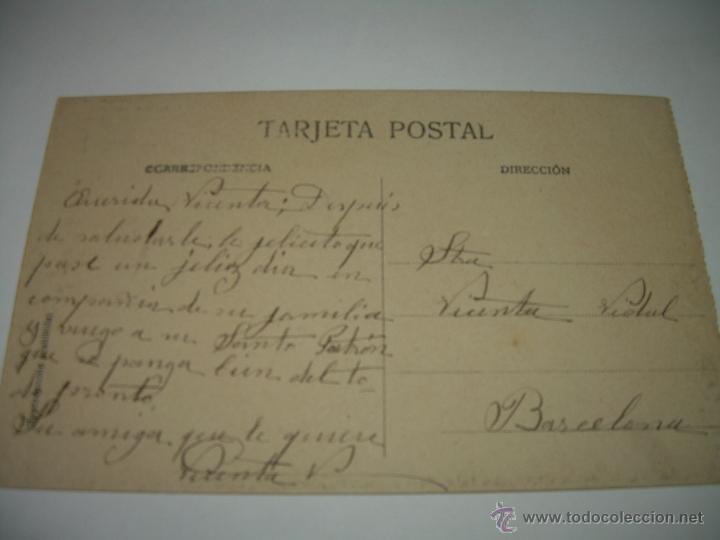 TARJETA POSTAL
CORRESPONDENCIA
DIRECCIÓN
Querida Vicenta; Después
de saludarle, le felicito que
pase un feliz dia en
compañia de su familia
y ruego a su Santo Patrón
que se ponga bien del to
do pronto
Su amiga que le quiere
Vicenta V
Stra
Vicenta Vidal
Barcelona
© www.todocoleccion.net